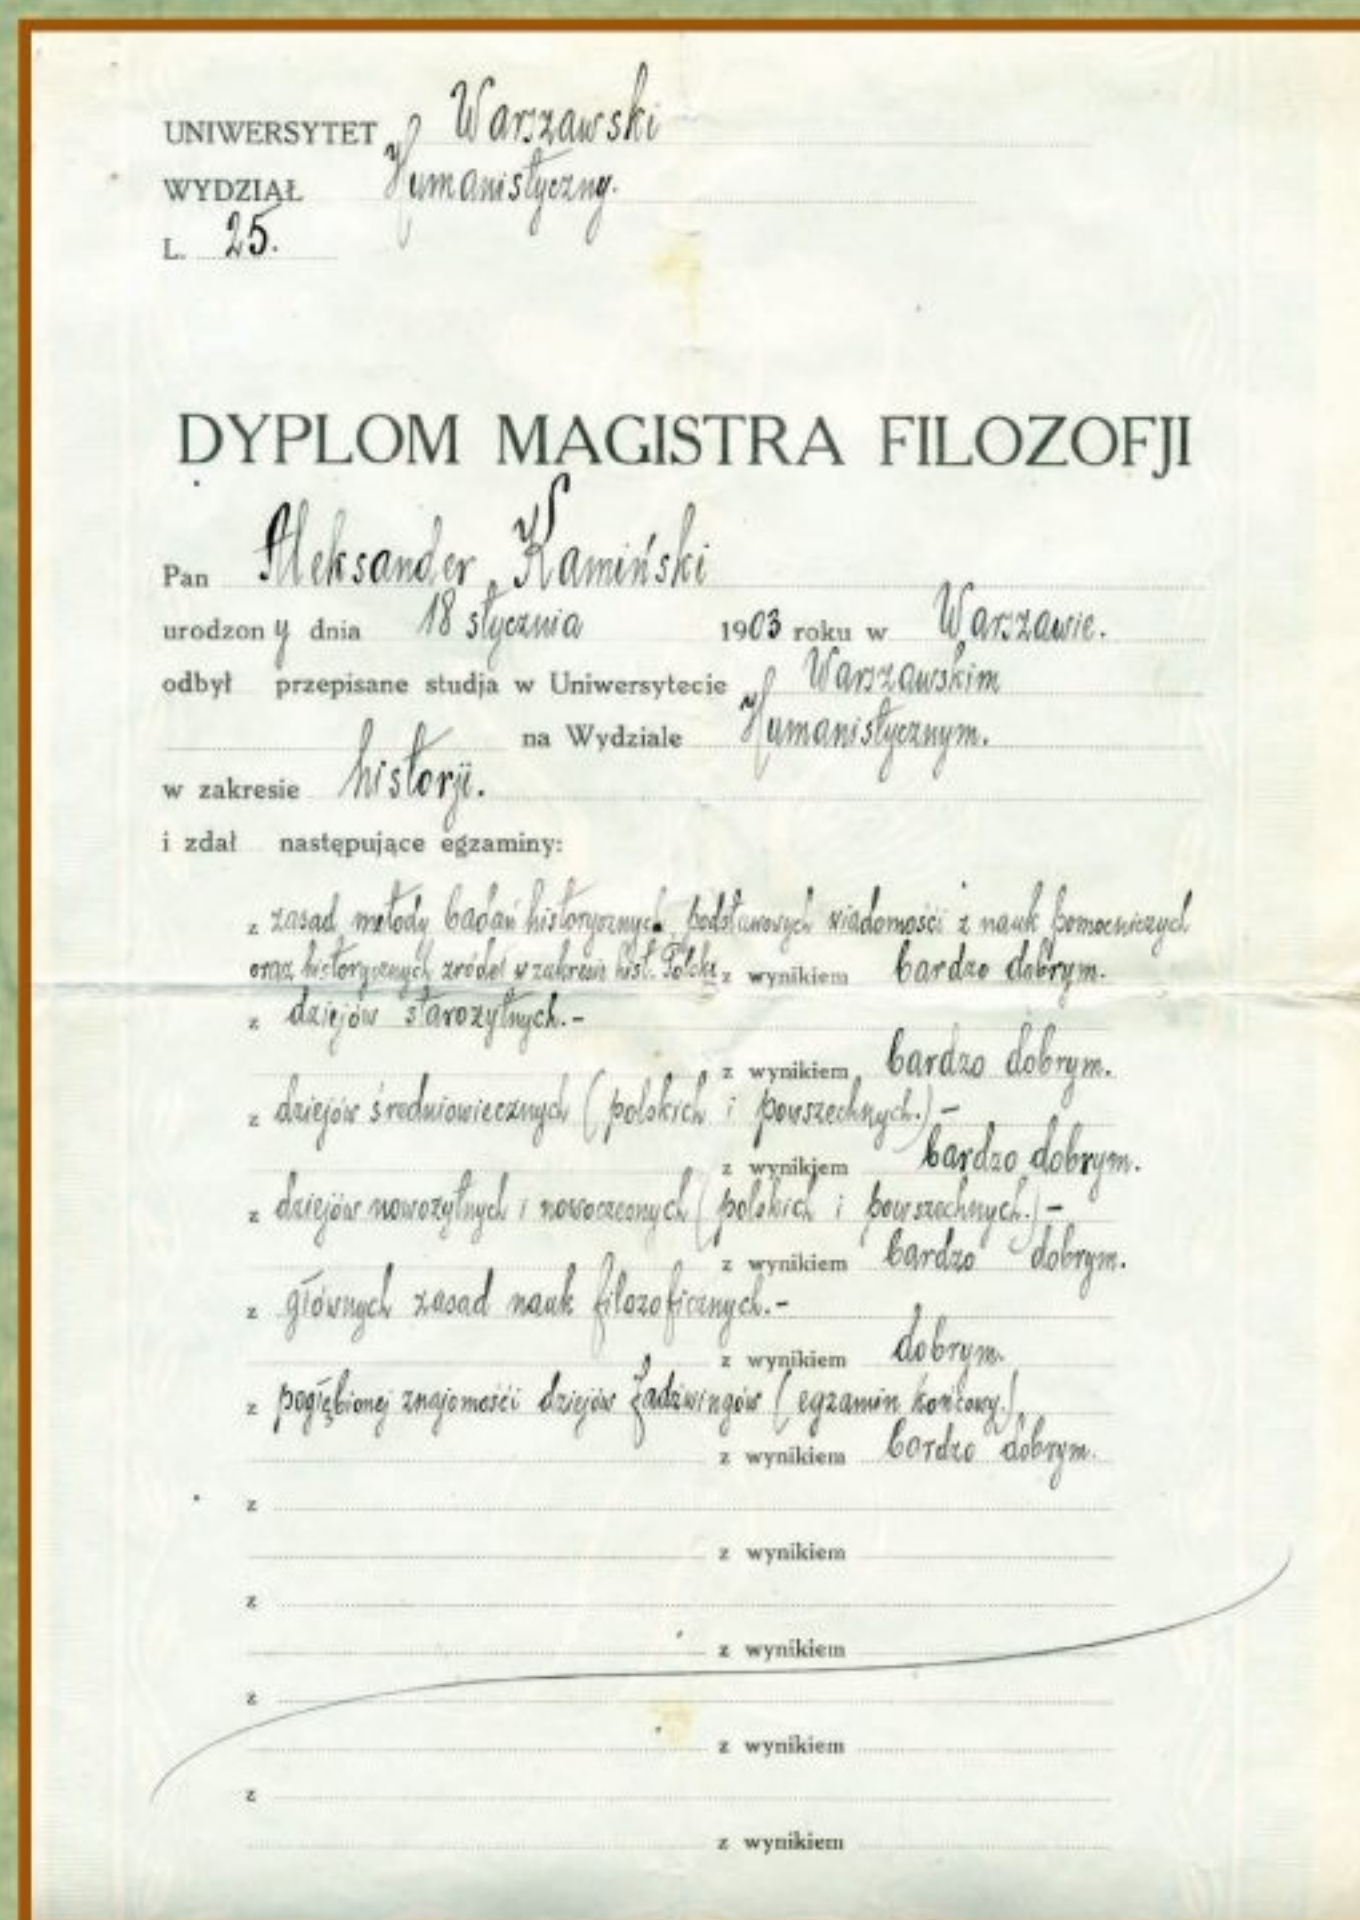 UNIWERSYTET Warszawski
WYDZIAŁ Humanistyczny.
L. 25.
DYPLOM MAGISTRA FILOZOFJI
Pan Aleksander Kamiński
urodzony dnia 18 stycznia 1903 roku w Warszawie.
odbył przepisane studja w Uniwersytecie Warszawskim
na Wydziale Humanistycznym.
w zakresie historji.
i zdał następujące egzaminy:
z zasad metody badań historycznych, podstawowych wiadomości z nauk pomocniczych
oraz historycznych źródeł w zakresie hist. Polski z wynikiem bardzo dobrym.
z dziejów starożytnych.-
z wynikiem bardzo dobrym.
z dziejów średniowiecznych (polskich i powszechnych.)-
z wynikiem bardzo dobrym.
z dziejów nowożytnych i nowoczesnych (polskich i powszechnych.)-
z wynikiem bardzo dobrym.
z głównych zasad nauk filozoficznych.-
z wynikiem dobrym.
z pogłębionej znajomości dziejów Jadźwingów (egzamin końcowy.)
z wynikiem bardzo dobrym.
z
z wynikiem
z
z wynikiem
z
z wynikiem
z
z wynikiem